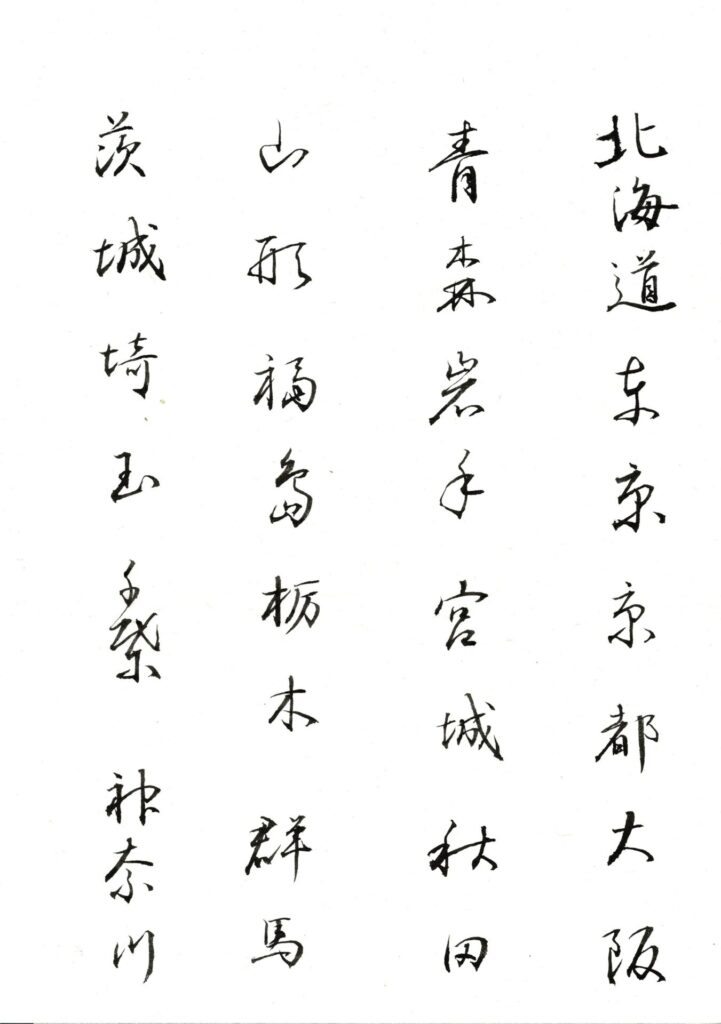 北海道东京京都大阪
青森岩手宮城秋田
山形福島栃木群馬
茨城埼玉千葉神奈川